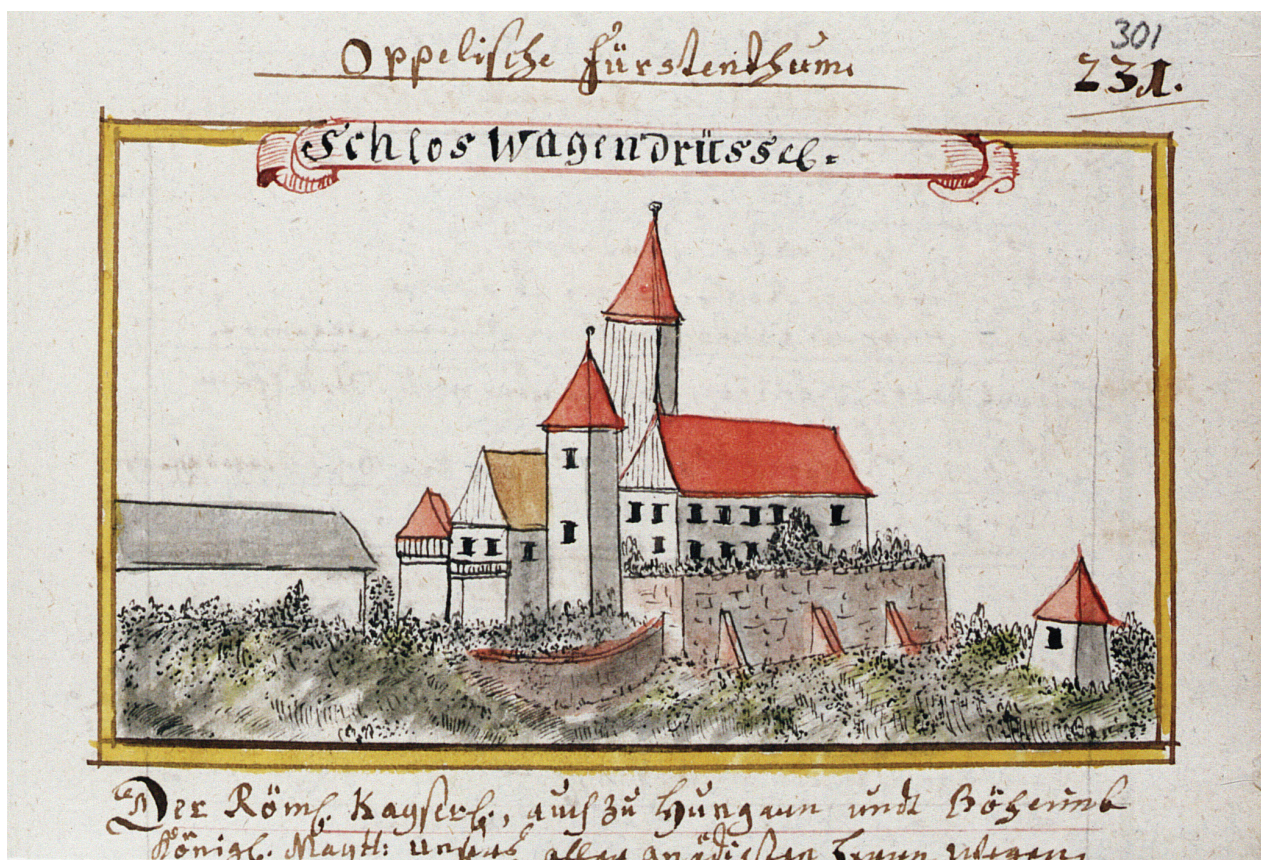 301
Oppelische Fürstenthum.
231.
Schlos Wagendrüssel.
Der Röml. Kayserl., auch zu Hungarn undt Böheimb
Königl. Maytt: unsers aller gnädigsten Herrn wegen